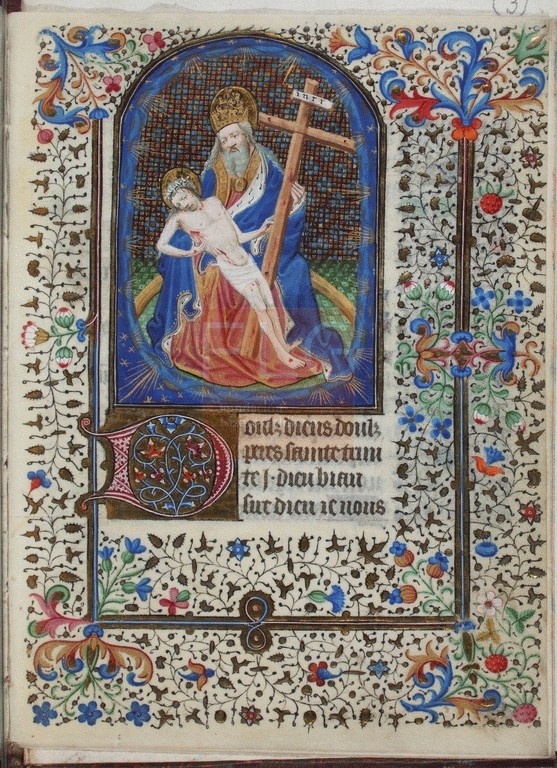 (3)
inri
Doulz dieus doulz
peres sainte trini
te j. dieu biau
sire dieu ie uous